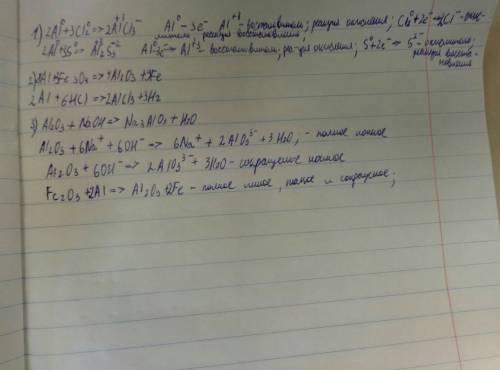 1) 2Al⁰+3Cl₂⁰=>2Al⁺³Cl₃⁻ Al⁰-3e⁻ Al⁺³- восстановитель; реакция окисления; Cl₂⁰+2e⁻→2Cl⁻-окис-
литель; реакция восстановления;
2Al⁰+3S⁰=> Al₂S₃⁻² Al⁰-3e⁻→Al⁺³- восстановитель; ре-ция окисления; S⁰+2e⁻→ S²⁻ окислитель;
реакция восста-
новления
2) 8Al+3Fe₃O₄=>4Al₂O₃+9Fe
2Al+6HCl=>2AlCl₃+3H₂
3) Al₂O₃+NaOH=> Na₃AlO₃+H₂O
Al₂O₃+6Na⁺+6OH⁻=> 6Na⁺+2AlO₃³⁻+3H₂O, - полное ионное
Al₂O₃+6OH⁻=> 2AlO₃³⁻+3H₂O- сокращённое ионное
Fe₂O₃+2Al=> Al₂O₃+2Fe - полное ионное, полное и сокращённое;